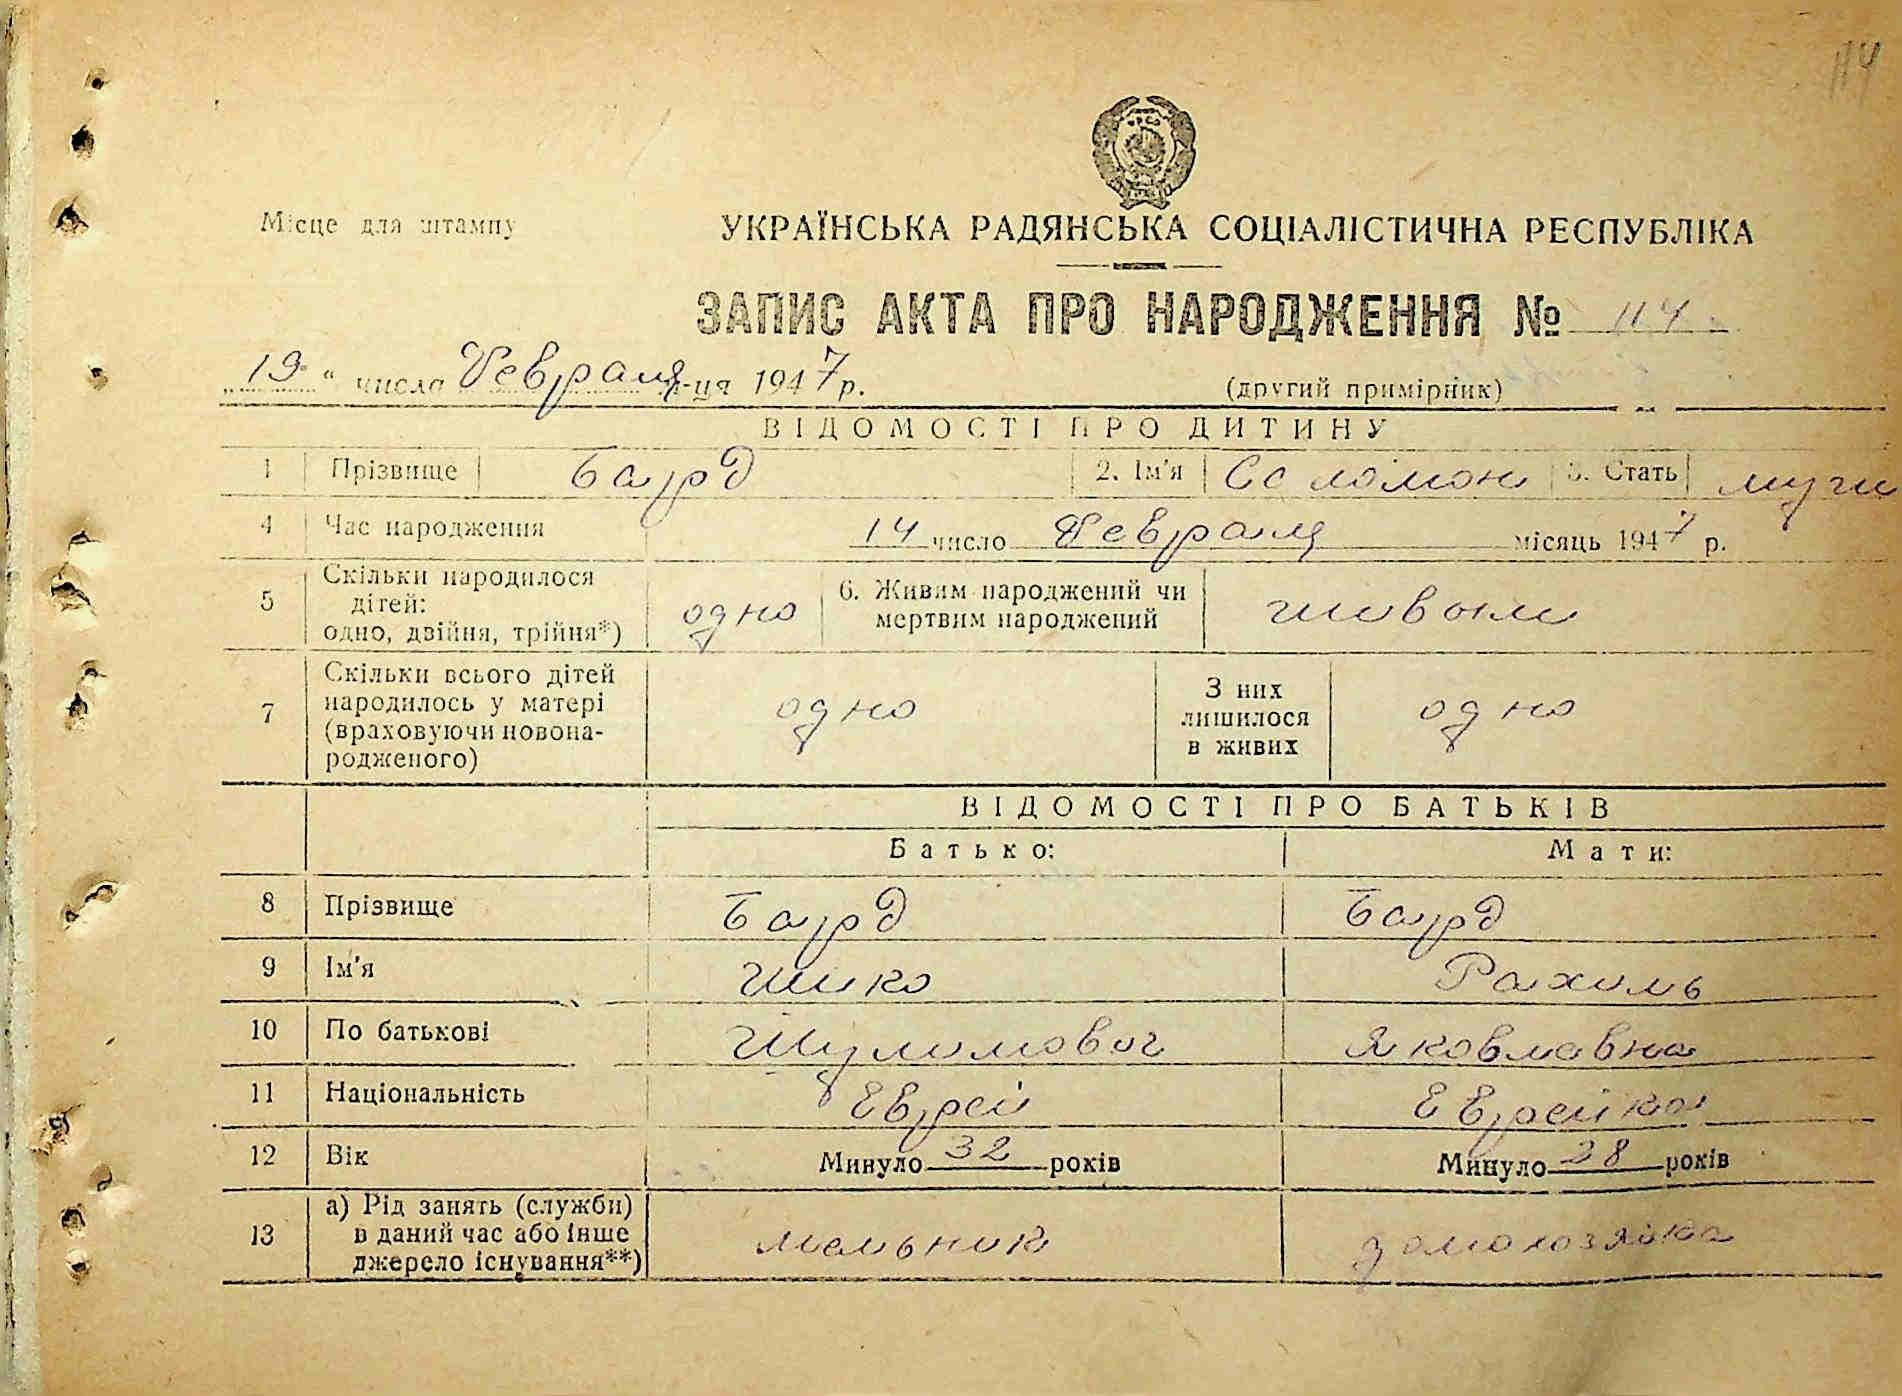 114
Місце для штампу
УКРАЇНСЬКА РАДЯНСЬКА СОЦІАЛІСТИЧНА РЕСПУБЛІКА
ЗАПИС АКТА ПРО НАРОДЖЕННЯ № 114
„19“ числа Февраля м-ця 1947 р. (другий примірник)
ВІДОМОСТІ ПРО ДИТИНУ
1 Прізвище Баурд 2. Ім'я Соломон 3. Стать муж
4 Час народження 14 число Февраля місяць 1947 р.
5 Скільки народилося дітей: одно, двійня, трійня*) одно 6. Живим народжений чи мертвим народжений живым
7 Скільки всього дітей народилось у матері (враховуючи новонародженого) одно З них лишилося в живих одно
ВІДОМОСТІ ПРО БАТЬКІВ
Батько: Мати:
8 Прізвище Баурд Баурд
9 Ім'я Шико Рахиль
10 По батькові Шулимович Яковлевна
11 Національність Еврей Еврейка
12 Вік Минуло 32 років Минуло 28 років
13 а) Рід занять (служби) в даний час або інше джерело існування**) мельник домохозяйка